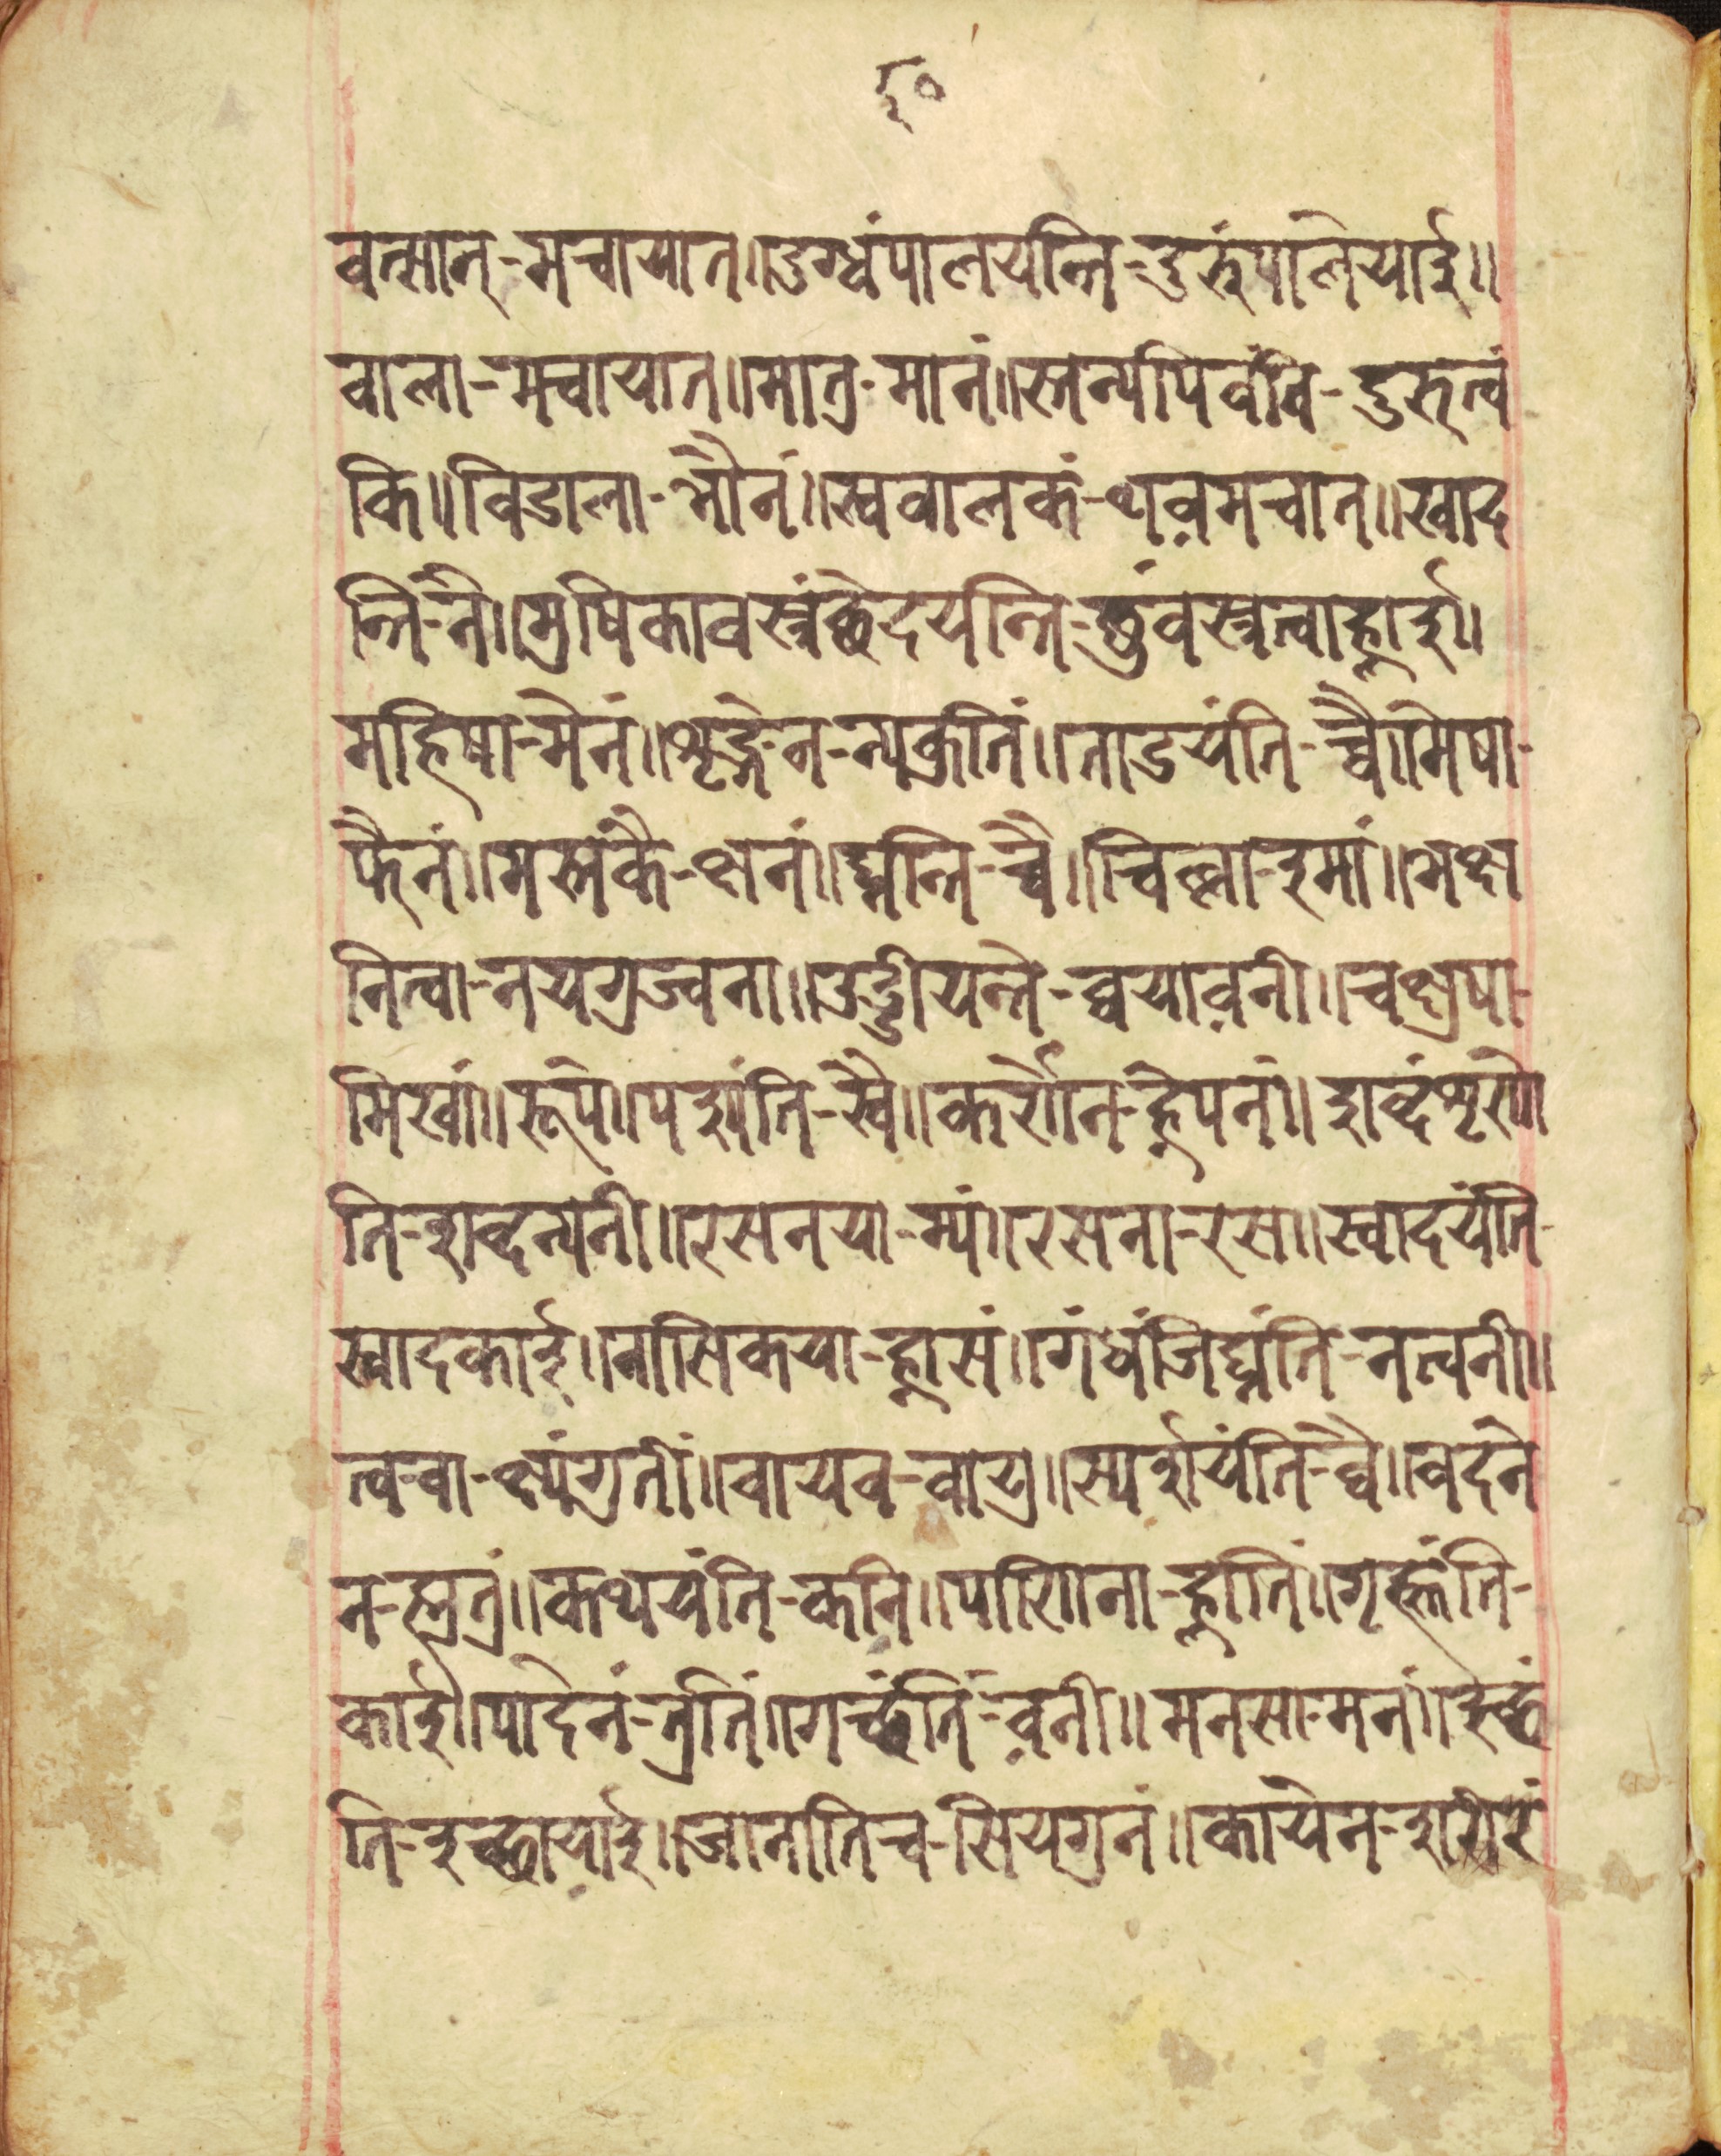 ६०
वत्सान्-मचायात॥दुग्धंपालयन्ति-दुरुंपालेयाई॥
वाला-मचायात॥मात्र-मानं॥स्तन्यपिवंति-दुरुत्वं
कि॥विडाला-भौनं॥स्ववालकं-थव़मचात॥खाद
न्ति-नै॥मुषिकावस्त्रंछेदयन्ति-छुंवस्त्रत्वाह्लाई॥
महिषा-मेनं॥शृङ्गेन-न्यकुतिं॥ताडयंति-च्वै॥मेषा-
फैनं॥मस्तंकै-क्षनं॥घ्नन्ति-च्वै॥चिल्ला-इमां॥भक्ष
नित्वा-नयगुज्वना॥उड्डीयन्ते-ब्वयाव़नी॥चक्षुषा-
मिखां॥रूपे॥पश्यंति-स्वै॥कर्णेन-ह्रेपनं॥शव्दंशृणो
ति-शव्दन्यनी॥रसनया-म्यं॥रसना-रस॥स्वादयंति-
स्वादकाई॥नासिकया-ह्नासं॥गंधंजिघ्रंति-नत्वनी॥
त्व-चा-क्ष्यंगुतीं॥वायव-वायु॥स्पर्शयंति-थ्वै॥वदने
न-ह्लुतुं॥कथयंति-कनि॥पाणिना-ह्लातिं॥गृह्लंति-
काई॥पादेनं-तुतिं॥गच्छंति-व़नी॥मनसा-मनं॥इच्छं
ति-इच्छायाई॥जानातिच-सियगुनं॥कायेन-शरीरं